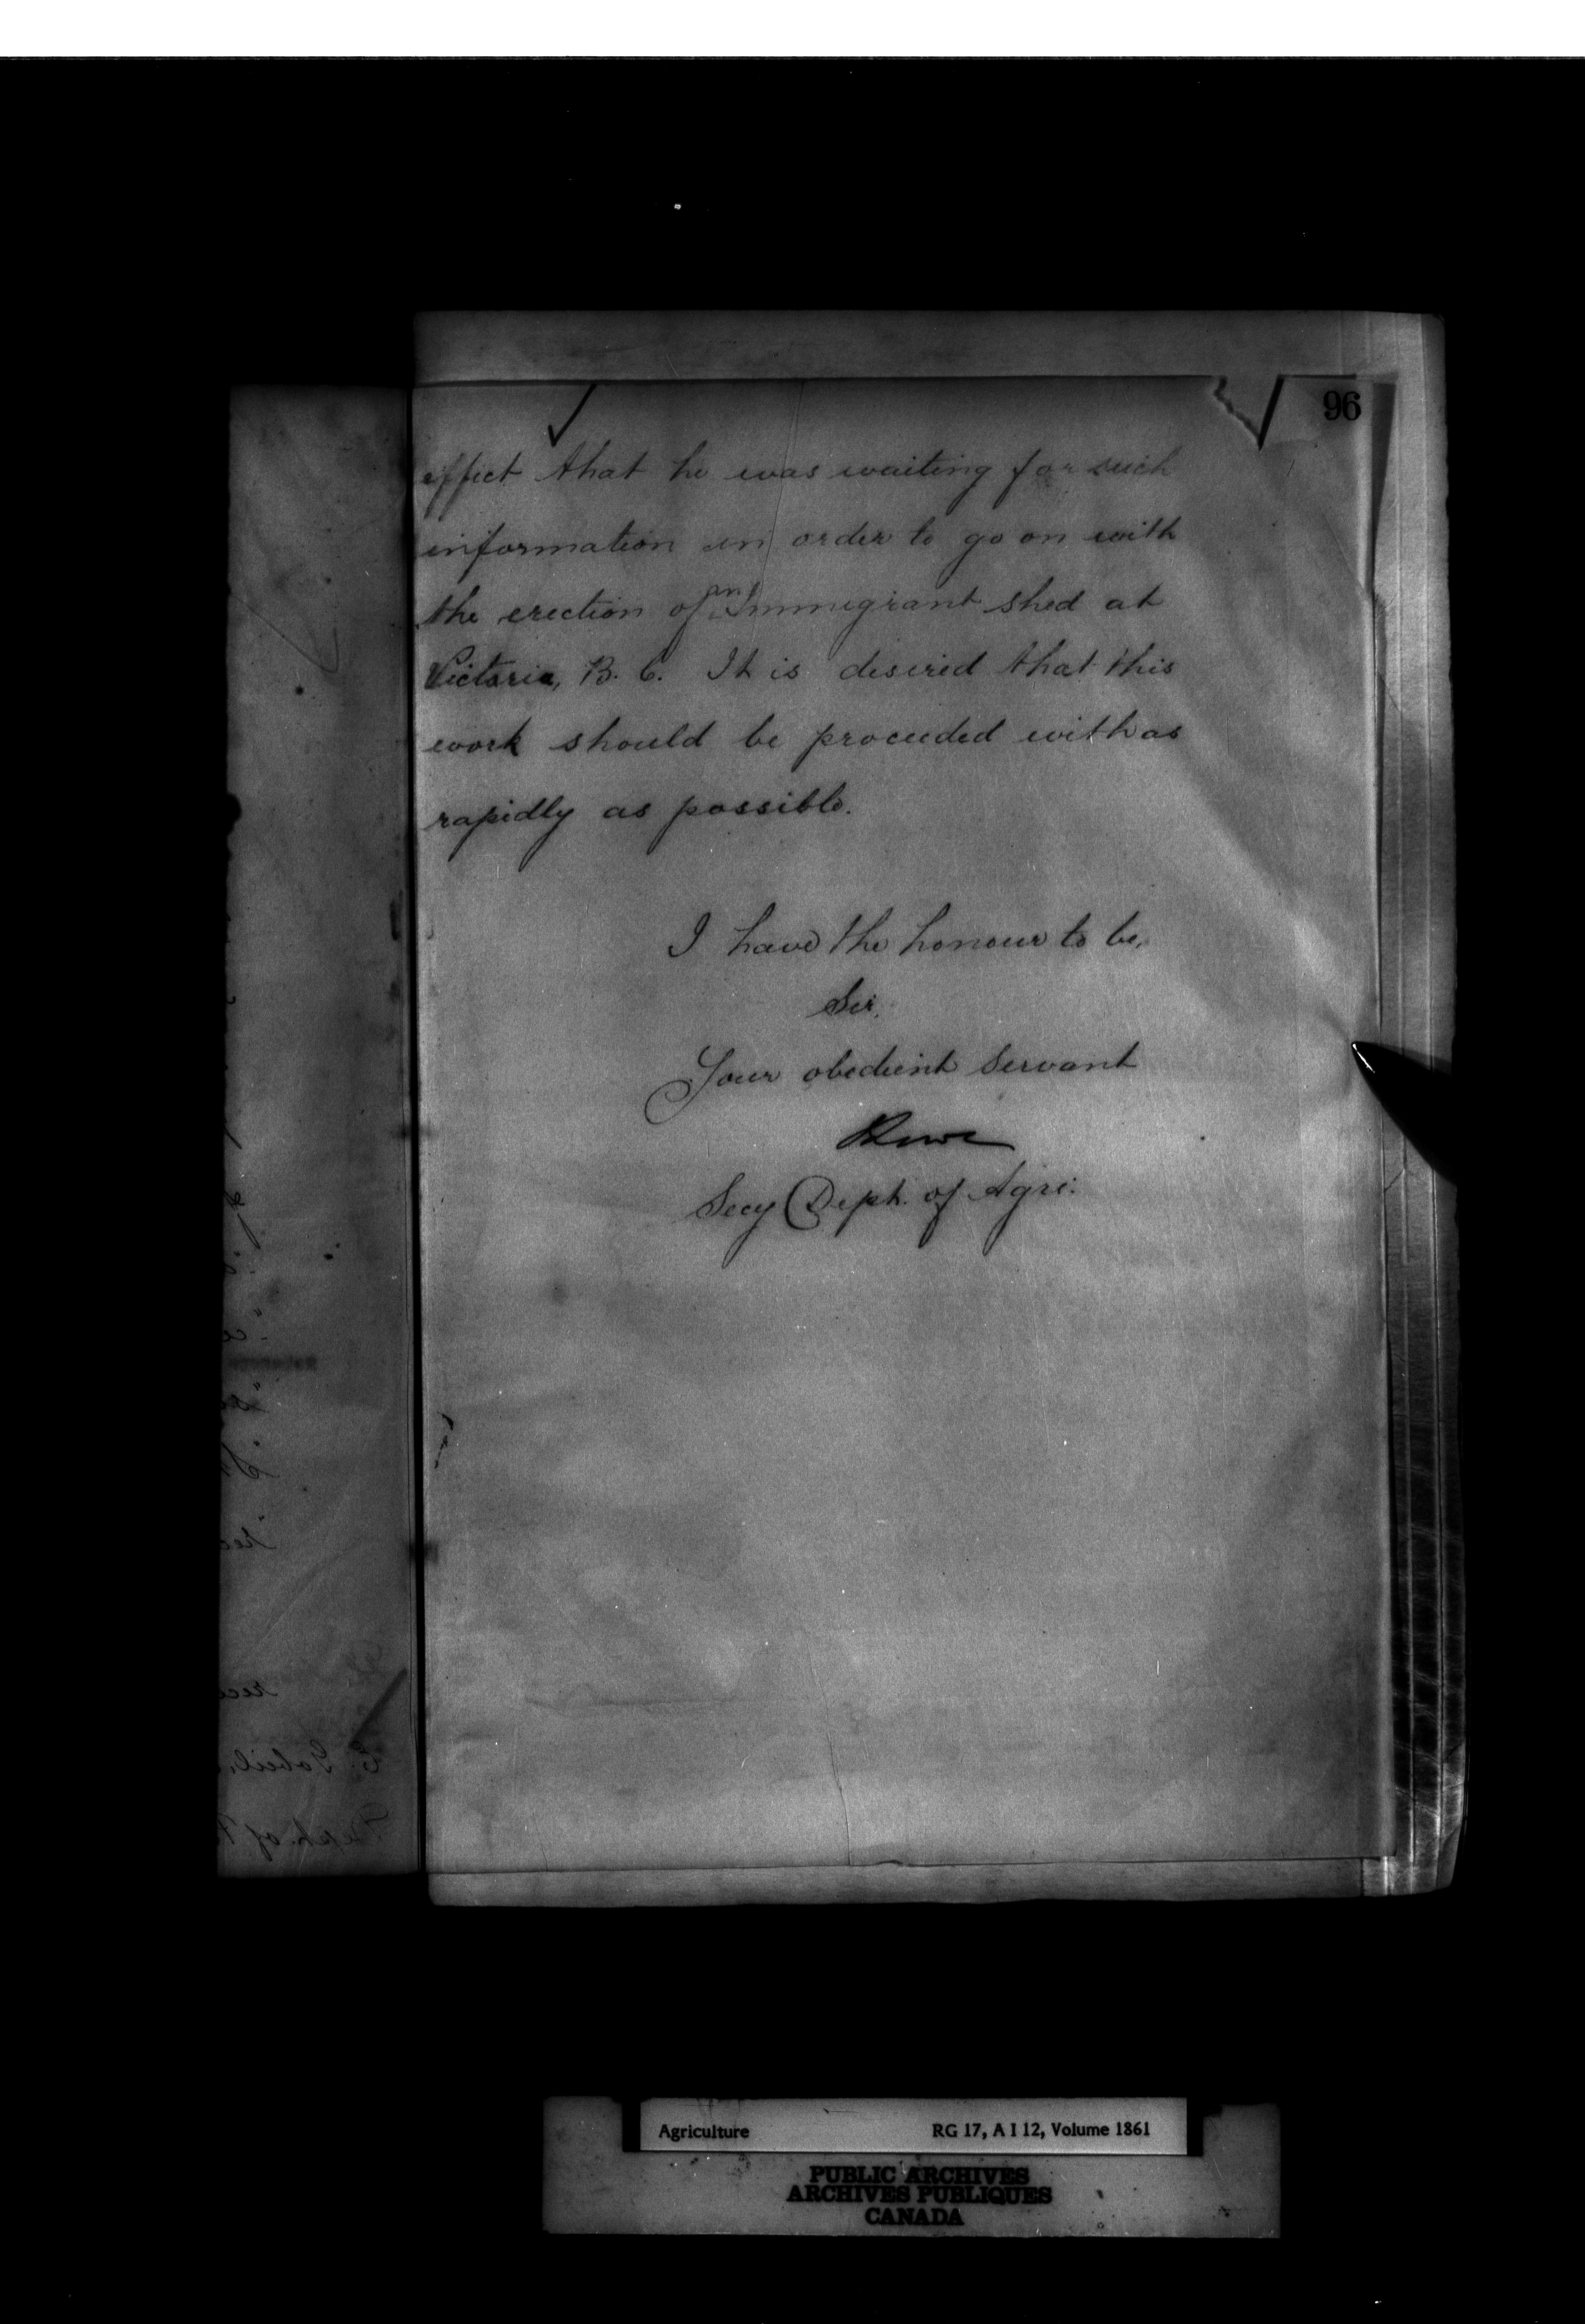 96
effect that he was waiting for such
information in order to go on with
the erection of an Immigrant shed at
Victoria, B. C. It is desired that this
work should be proceeded with as
rapidly as possible.
I have the honour to be,
Sir,
Your obedient Servant
Secy Dept. of Agri:
Agriculture RG 17, A I 12, Volume 1861
PUBLIC ARCHIVES
ARCHIVES PUBLIQUES
CANADA